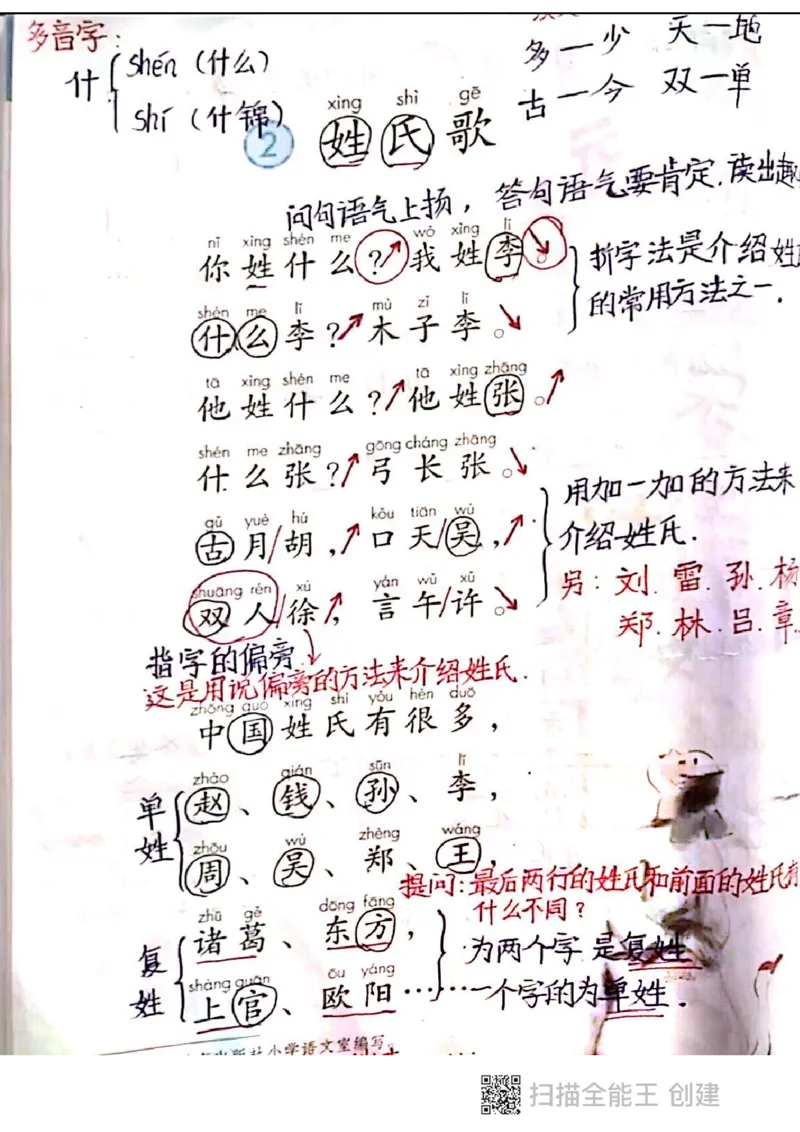 多音字：
什 shén（什么）
shí（什锦）
多一少 天一地
古一今 双一单
xìng shì gē
2 姓氏歌
问句语气上扬，答句语气要肯定.读出趣
nǐ xìng shén me wǒ xìng lǐ
你姓什么？我姓李。
拆字法是介绍姓
的常用方法之一.
shén me lǐ mù zǐ lǐ
什么李？木子李。
tā xìng shén me tā xìng zhāng
他姓什么？他姓张。
shén me zhāng gōng cháng zhāng
什么张？弓长张。
用加一加的方法来
介绍姓氏.
gǔ yuè hú kǒu tiān wú
古月/胡，口天/吴，
shuāng rén xú yán wǔ xǔ
双人/徐，言午/许。
另：刘.雷.孙.杨
郑.林.吕.章
指字的偏旁
这是用说偏旁的方法来介绍姓氏.
zhōng guó xìng shì yǒu hěn duō
中国姓氏有很多，
单姓
zhào qián sūn lǐ
赵、钱、孙、李，
zhōu wú zhèng wáng
周、吴、郑、王，
提问：最后两行的姓氏和前面的姓氏有
什么不同？
复姓
zhū gě dōng fāng
诸葛、东方，
为两个字是复姓
shàng guān ōu yáng
上官、欧阳……
一个字的为单姓.
出版社小学语文室编写。
扫描全能王 创建